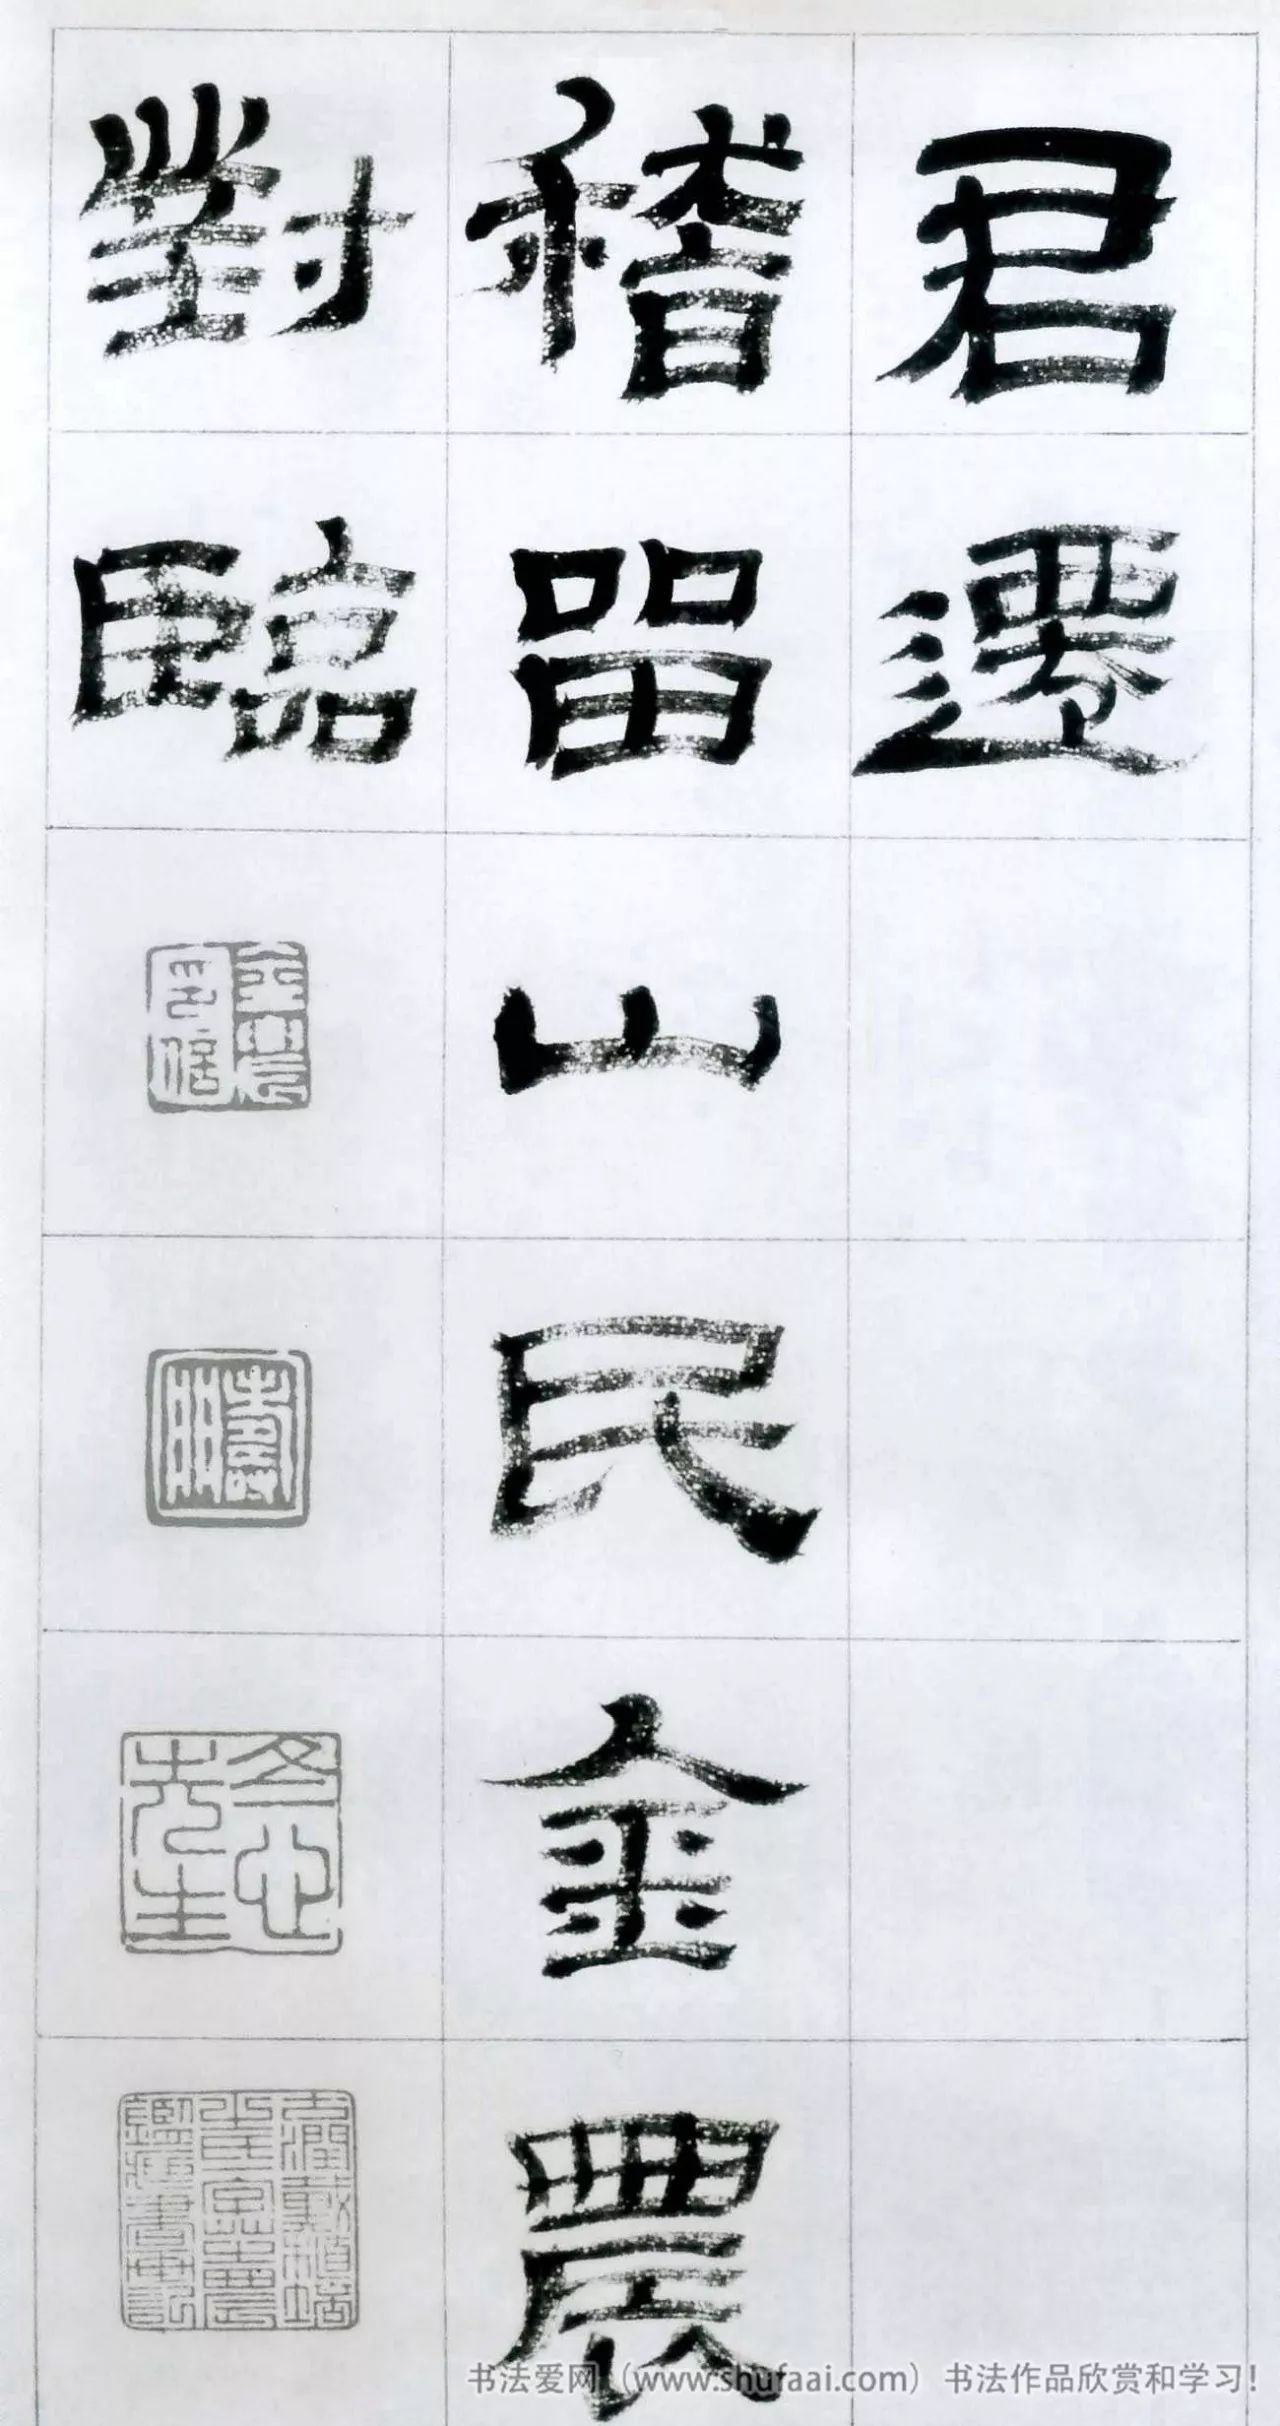 君遷
稽留山民金農
對臨
冬心先生
书法爱网（www.shufaai.com）书法作品欣赏和学习！